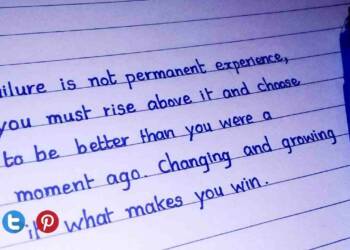 ilure is not permanent experience,
you must rise above it and choose
to be better than you were a
moment ago. Changing and growing
what makes you win.